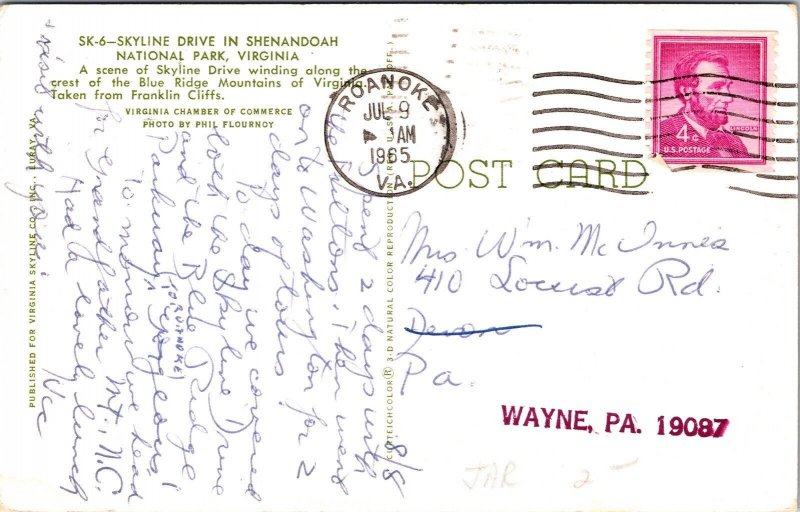 SK-6—SKYLINE DRIVE IN SHENANDOAH
NATIONAL PARK, VIRGINIA
A scene of Skyline Drive winding along the
crest of the Blue Ridge Mountains of Virginia.
Taken from Franklin Cliffs.
VIRGINIA CHAMBER OF COMMERCE
PHOTO BY PHIL FLOURNOY
PUBLISHED FOR VIRGINIA SKYLINE CO., INC., LURAY, VA.
8/8
Spend 2 days with
the Fultons, then went
on to Washington for 2
days of tours!
To day we covered
both the Skyline Drive
and the Blue Ridge
Parkway, gorgeous!
(TO ROANOKE)
To morrow we head
for Grandfather Mt. N.C.
Had a lovely lunch
visit with you!
Vic
3-D NATURAL COLOR REPRODUCTION
ROANOKE
JUL 9
AM
1965
VA.
4¢
LINCOLN
U.S. POSTAGE
POST CARD
Mrs Wm. McInnes
410 Locust Rd.
Devon
Pa.
WAYNE, PA. 19087
JAR 2-